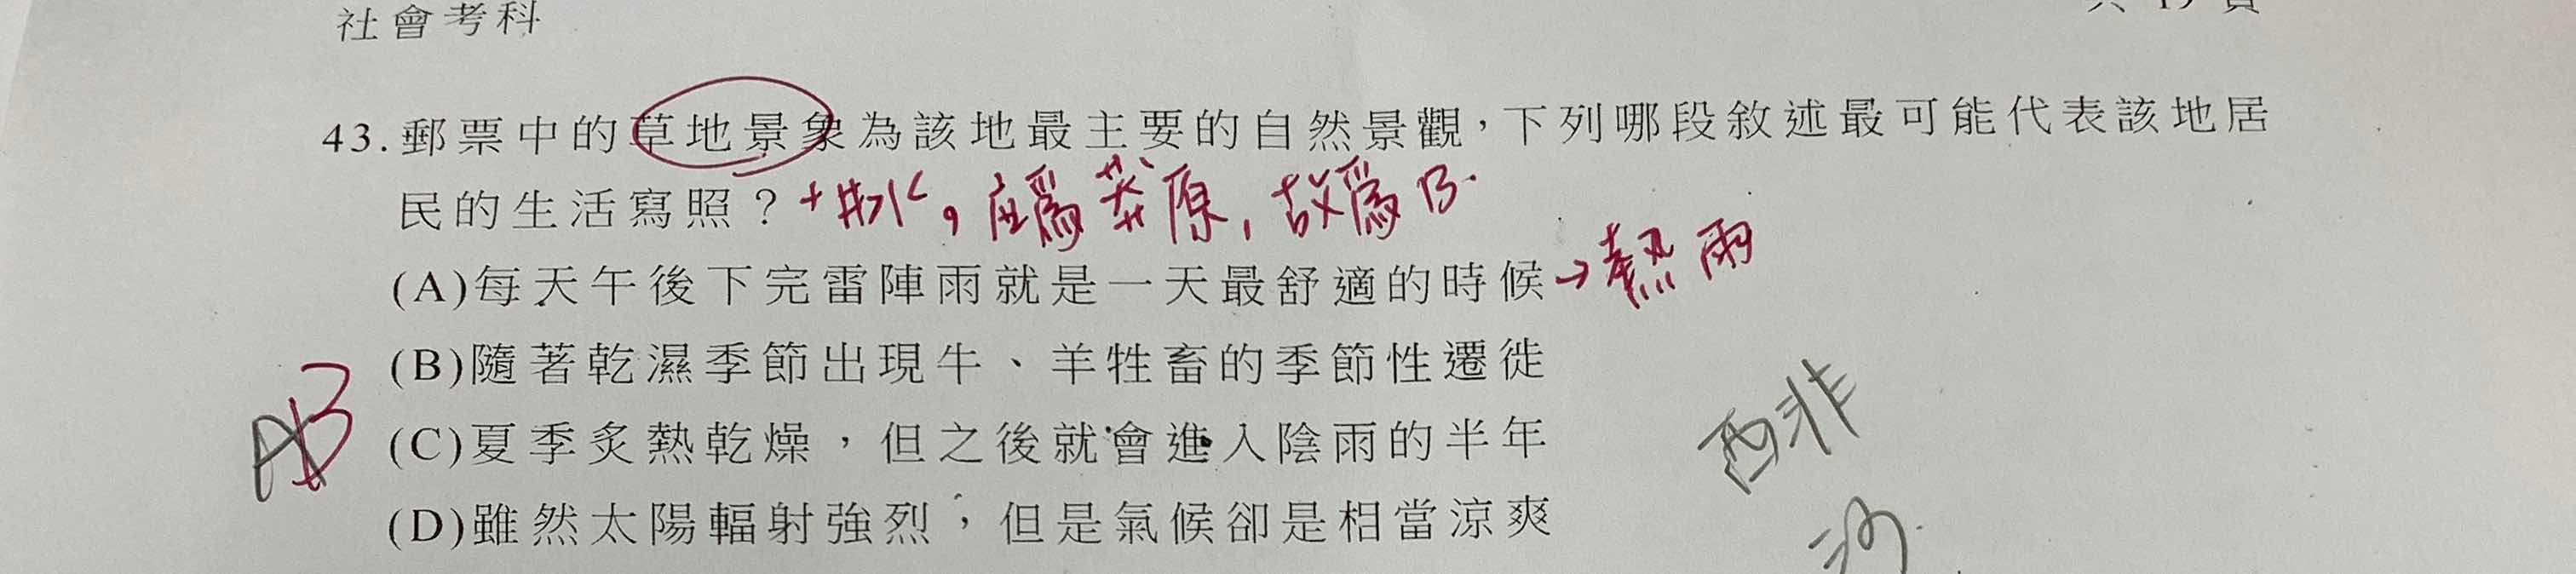 社會考科
43.郵票中的草地景象為該地最主要的自然景觀，下列哪段敘述最可能代表該地居
民的生活寫照？+非洲，應爲莽原，故爲B.
(A)每天午後下完雷陣雨就是一天最舒適的時候→熱雨
(B)隨著乾濕季節出現牛、羊牲畜的季節性遷徙
AB
(C)夏季炙熱乾燥，但之後就會進入陰雨的半年
西非
(D)雖然太陽輻射強烈，但是氣候卻是相當涼爽